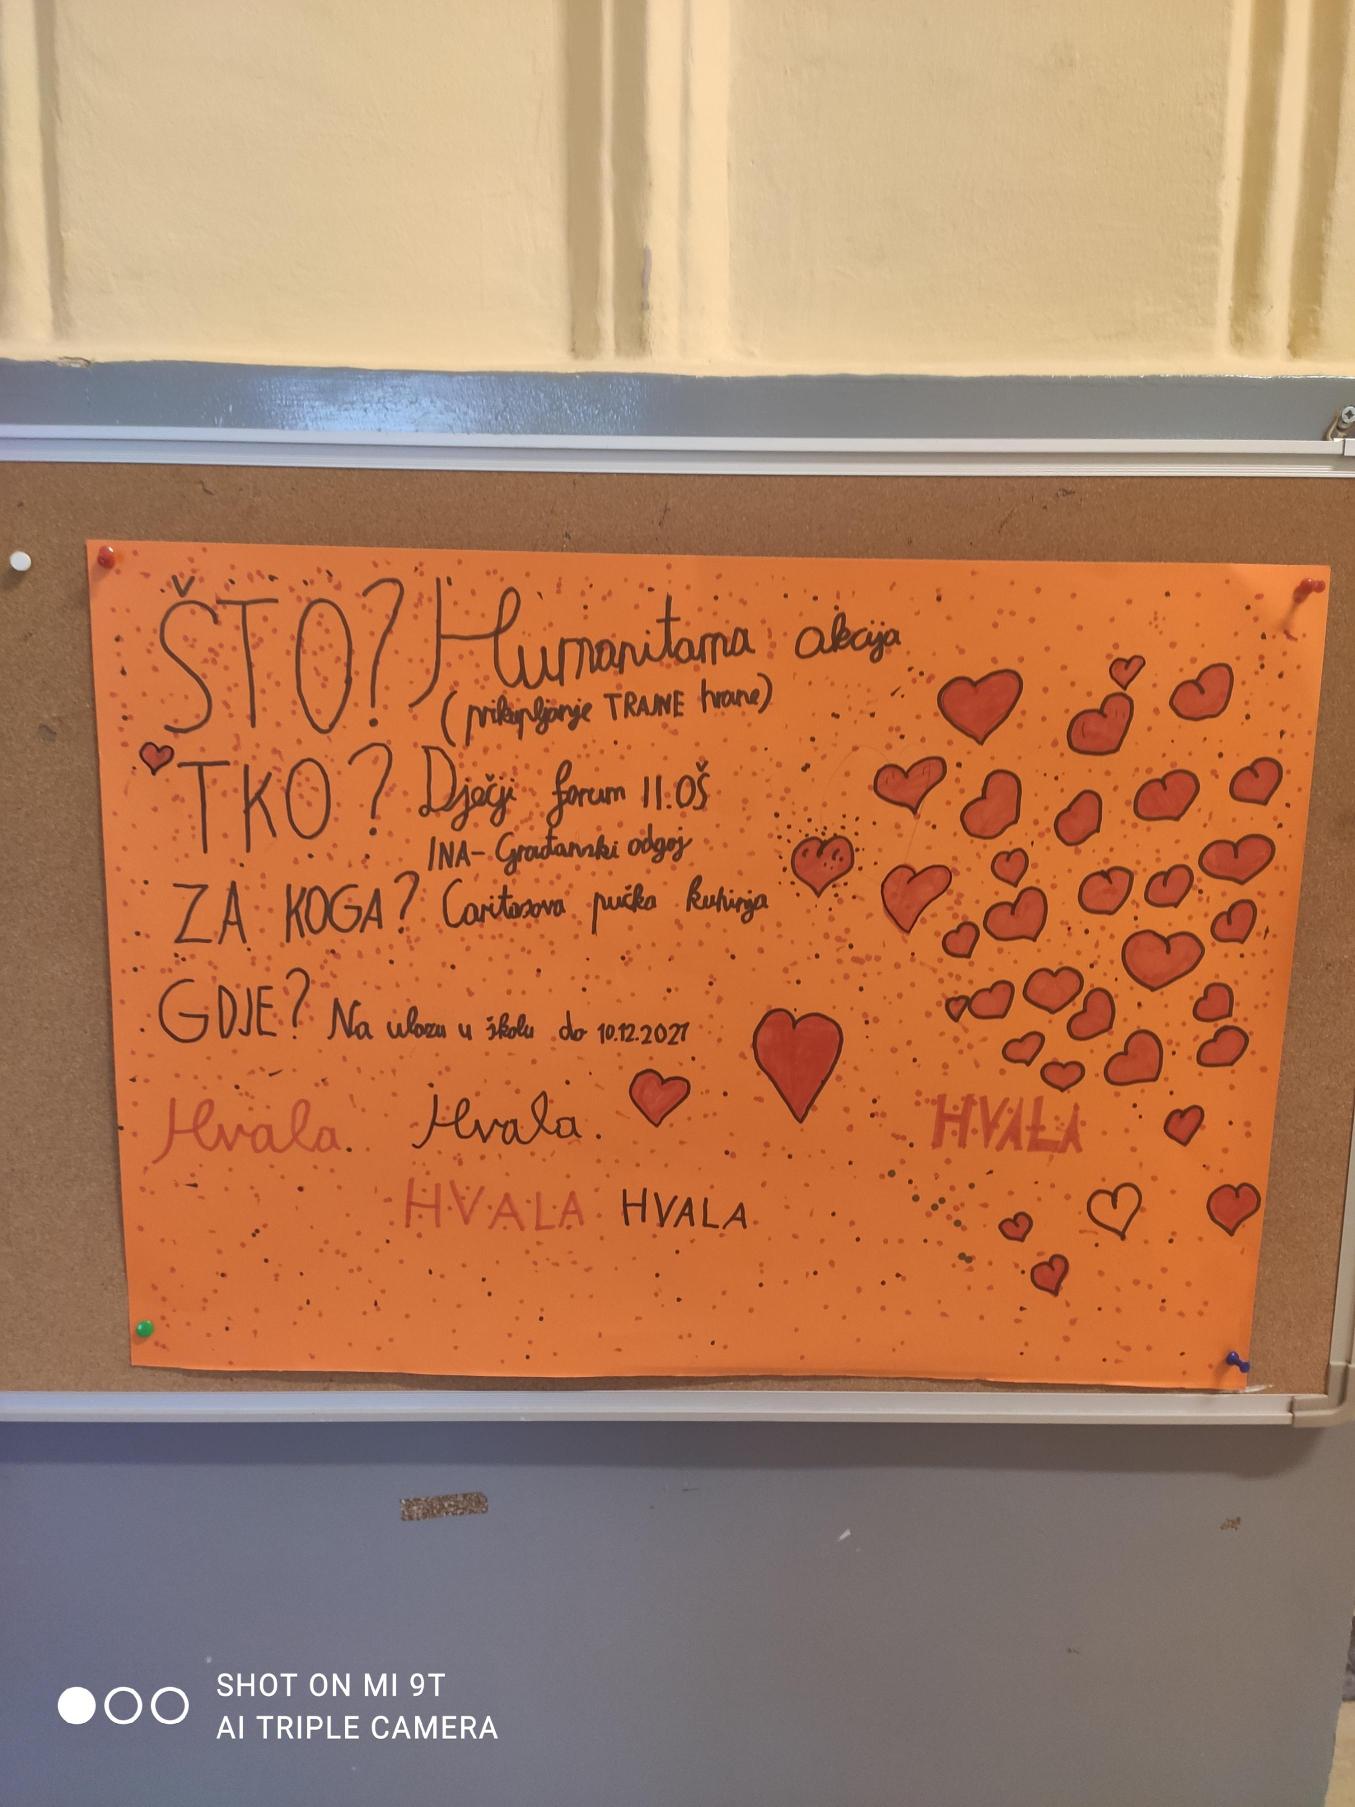 ŠTO? Humanitarna akcija
(prikupljanje TRAJNE hrane)
TKO? Dječji forum II.OŠ
INA- Građanski odgoj
ZA KOGA? Caritasova pučka kuhinja
GDJE? Na ulazu u školu do 10.12.2021
Hvala. Hvala. HVALA
HVALA HVALA
SHOT ON MI 9T
AI TRIPLE CAMERA